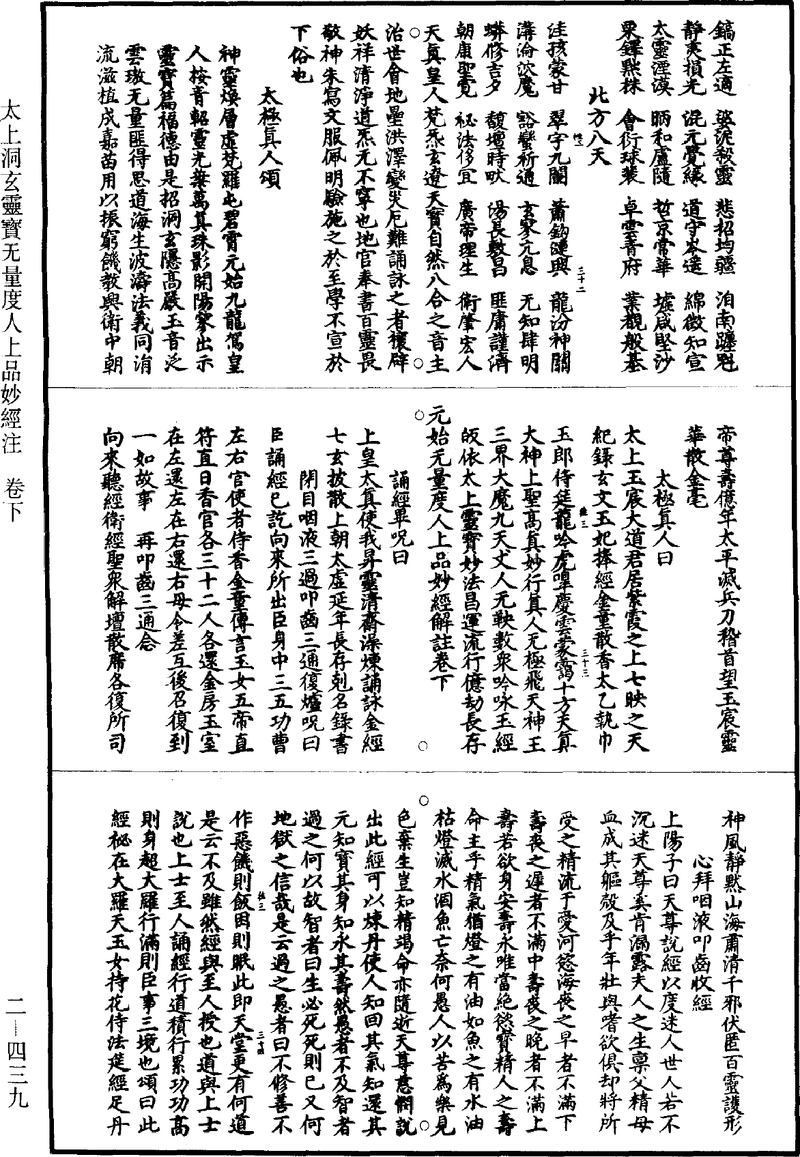 太上洞玄靈寶无量度人上品妙經注　卷下
二—四三九
鎬正左適　婆泥救靈　悲招均疆　洎南躔魁
靜夷損光　混元覺緣　道守岑遥　綿微知宣
太靈溼漠　炳和盧隨　哲京常華　墟咸堅沙
粟鐸黙秣　會衍球裴　卓雲青府　業觀般基
北方八天
洼孩蒙甘　翠宇九關　蕭鈎漣輿　龍汾神關
溝淪沈魔　谿蠻祈通　玄家宂息　无知肆明
蟒修吉夕　馥壇時吠　湯長敷昌　匪庸謹濟
朝康聖覓　祕法侈宜　廣帝理生　衛肇宏人
天真皇人梵炁玄遼天寶自然八合之音主
治世會地壘洪澤變災厄難誦詠之者禳辟
妖祥清淨道炁元不寧也地官奉書百靈畏
敬神朱寫文服佩明驗施之於至學不宣於
下俗也
太極真人頌
神霄煥層虛梵羅屯碧霄元始九龍駕皇
人按青軺靈光葉萬真珠影開陽寥出示
靈寶篇福德由是招洞玄隱高嚴玉音泛
雲璈无量匪得思道海生波濤法義同涓
流滋植成嘉苗用以振窮饑教與衛中朝
帝尊壽億年太平滅兵刀稽首望玉宸靈
華散金毫
太極真人曰
太上玉宸大道君居紫霞之上七映之天
紀錄玄文玉妃捧經金童散香太乙執巾
玉郎侍筵龍吟虎嘷慶雲蒙靄十方天真
大神上聖高真妙行真人无極飛天神王
三界大魔九天丈人无鞅數衆吟咏玉經
皈依太上靈寶妙法昌運流行億劫長存
元始无量度人上品妙經解註卷下
誦經畢呪曰
上皇太真使我昇靈清齋澡煉誦詠金經
七玄披散上朝太虛延年長存剋名錄書
閉目咽液三過叩齒三通復爐呪曰
臣誦經已訖向來所出臣身中三五功曹
左右官使者侍香金童傳言玉女五帝直
符直日香官各三十二人各還金房玉室
在左還左在右還右毋令差互後召復到
一如故事　再叩齒三通念
向來聽經衛經聖衆解壇散席各復所司
神風靜默山海肅清千邪伏匿百靈護形
心拜咽液叩齒收經
上陽子曰天尊說經以度迷人世人若不
沉迷天尊奚肯漏露夫人之生禀父精母
血成其軀殼及乎年壯與嗜欲俱却將所
受之精流于愛河慾海喪之早者不滿下
壽喪之遲者不滿中壽喪之晚者不滿上
壽若欲身安壽永唯當絶慾寶精人之壽
命主乎精氣猶燈之有油如魚之有水油
枯燈滅水涸魚亡奈何愚人以苦爲樂見
色棄生豈知精竭命亦隨逝天尊慈憫說
出此經可以煉丹使人知回其氣知還其
元知寶其身知永其壽然愚者不及智者
過之何以故智者曰生必死死則已又何
地獄之信哉是云過之愚者曰不修善不
作惡饑則飯困則眠此即天堂更有何道
是云不及雖然經與至人授也道與上士
說也上士至人誦經行道積行累功功高
則身超大羅行滿則臣事三境也頌曰此
經祕在大羅天玉女持花侍法筵經足丹